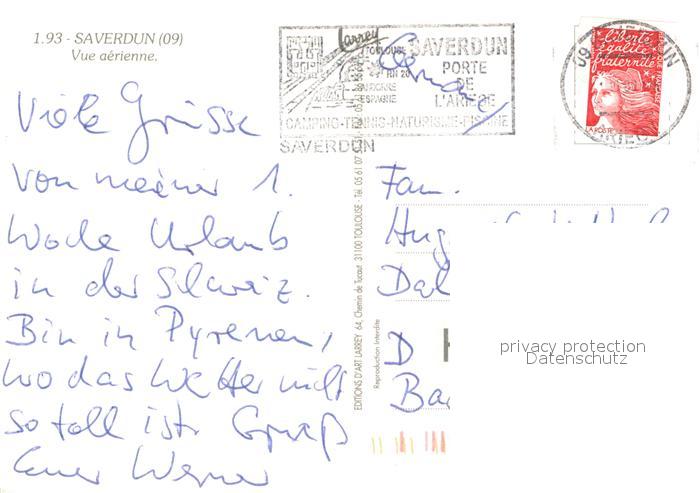 1.93 - SAVERDUN (09)
Vue aérienne.
Larrey
TOULOUSE
SAVERDUN
PORTE
DE
L'ARIÈGE
ESPAGNE
CAMPING-TENNIS-NATURISME-PISCINE
SAVERDUN
09
liberté
égalité
fraternité
LA POSTE
Viele Grüsse
von meiner 1.
Woche Urlaub
in der Schweiz.
Bin in Pyrenen,
wo das Wetter nicht
so toll ist. Gruß
Euer Werner
EDITIONS D'ART LARREY 64, Chemin de Tucaut 31100 TOULOUSE - Tél. 05 61 07
Reproduction Interdite
Fam.
Hug
Dal
D
Ba
privacy protection
Datenschutz